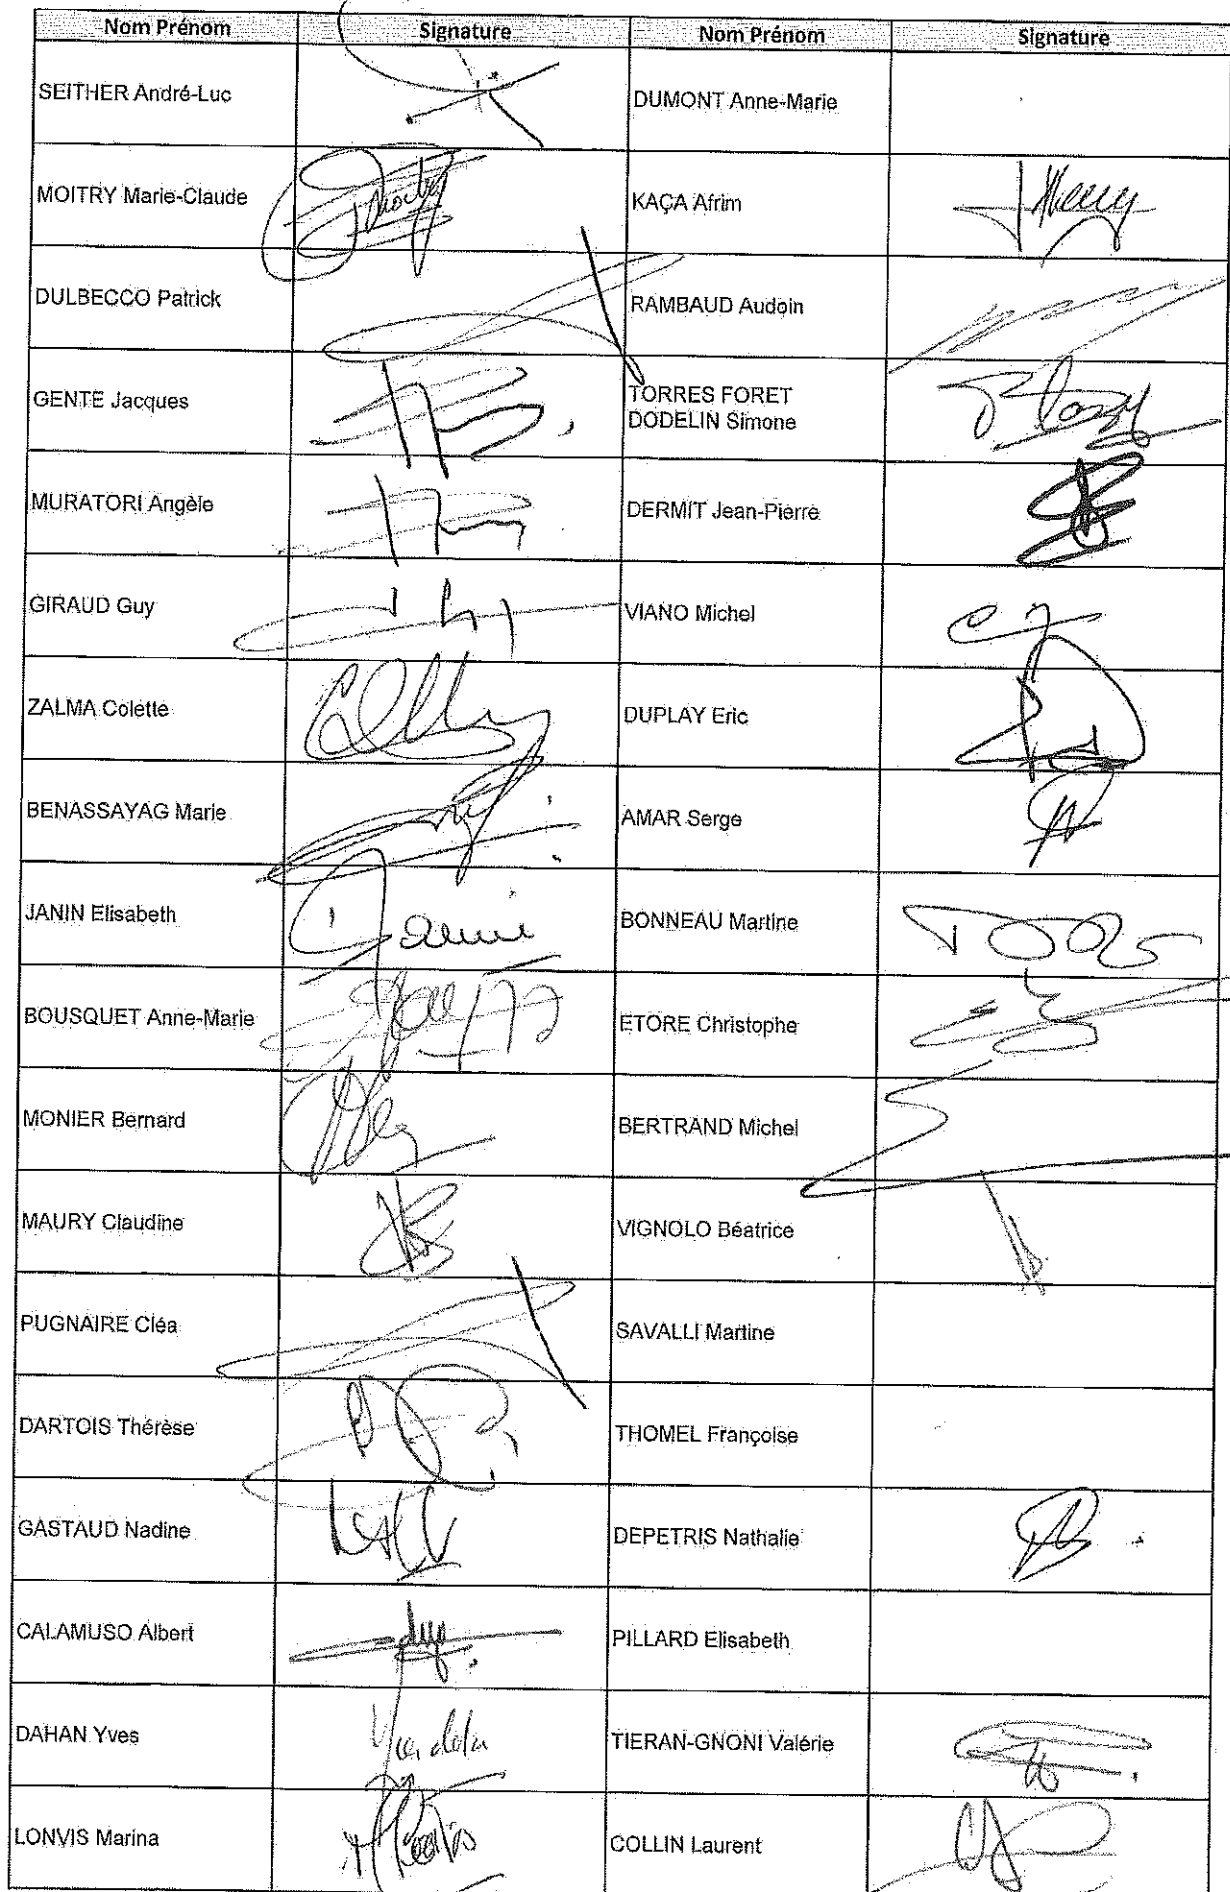 Nom Prénom Signature Nom Prénom Signature
SEITHER André-Luc DUMONT Anne-Marie
MOITRY Marie-Claude KAÇA Afrim
DULBECCO Patrick RAMBAUD Audoin
GENTE Jacques TORRES FORET
DODELIN Simone
MURATORI Angèle DERMIT Jean-Pierre
GIRAUD Guy VIANO Michel
ZALMA Colette DUPLAY Eric
BENASSAYAG Marie AMAR Serge
JANIN Elisabeth BONNEAU Martine
BOUSQUET Anne-Marie ETORE Christophe
MONIER Bernard BERTRAND Michel
MAURY Claudine VIGNOLO Béatrice
PUGNAIRE Cléa SAVALLI Martine
DARTOIS Thérèse THOMEL Françoise
GASTAUD Nadine DEPETRIS Nathalie
CALAMUSO Albert PILLARD Elisabeth
DAHAN Yves TIERAN-GNONI Valérie
LONVIS Marina COLLIN Laurent